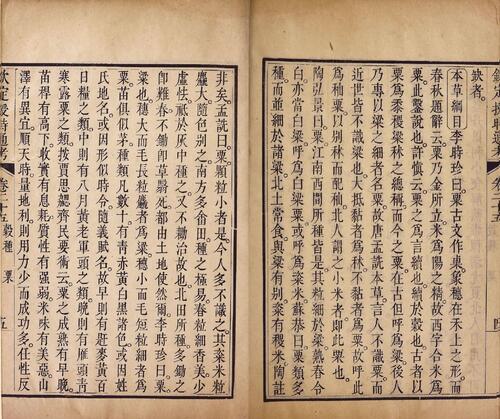 缺者。
本草綱目李時珍曰。粟古文作㮚。象穗在禾上之形。而
春秋題辭云。粟乃金所立。米為陽之精。故西字合米為
粟。此鑿說也。許慎云。粟之為言續也。續於穀也。古者以
粟為黍稷粱秫之總稱。而今之粟。在古但呼為粱。後人
乃專以粱之細者名粟。故唐孟詵本草言人不識粟。而
近世皆不識粱也。大抵黏者為秫。不黏者為粟。故呼此
為秈粟。以別秫而配秈。北人謂之小米者。即此粟也。
陶弘景曰。粟江南西間所種皆是。其粒細於粱。熟舂令
白。亦當白粱。呼為白粱粟。或呼為粢米。蘇恭曰。粟類多
種。而並細於諸粱。北土常食。與粱有別。粢有稷米。陶註
非矣。孟詵曰。粟顆粒小者是。今人多不識之。其粱米粒
麤大。隨色別之。南方多畬田種之。極易舂。粒細香美。少
虛怯。祗於灰中種之。又不鋤治故也。北田所種多鋤之
即難舂。不鋤即草翳死。都由土地使然爾。李時珍曰。粟
粱也。穗大而毛長粒麤者為粱。穗小而毛短粒細者為
粟。苗俱似茅。種類凡數十。有青赤黃白黑諸色。或因姓
氏地名。或因形似時令。隨義賦名。故早則有趕麥黃百
日糧之類。中則有八月黃老軍頭之類。晚則有雁頭青
寒露粟之類。按賈思勰齊民要術云。粟之成熟有早晚。
苗稈有高下。收實有息耗。質性有強弱。米味有美惡。山
澤有異宜。順天時量地利。則用力少而成功多。任性反
欽定授時通考 卷二十五 穀種 粟 五